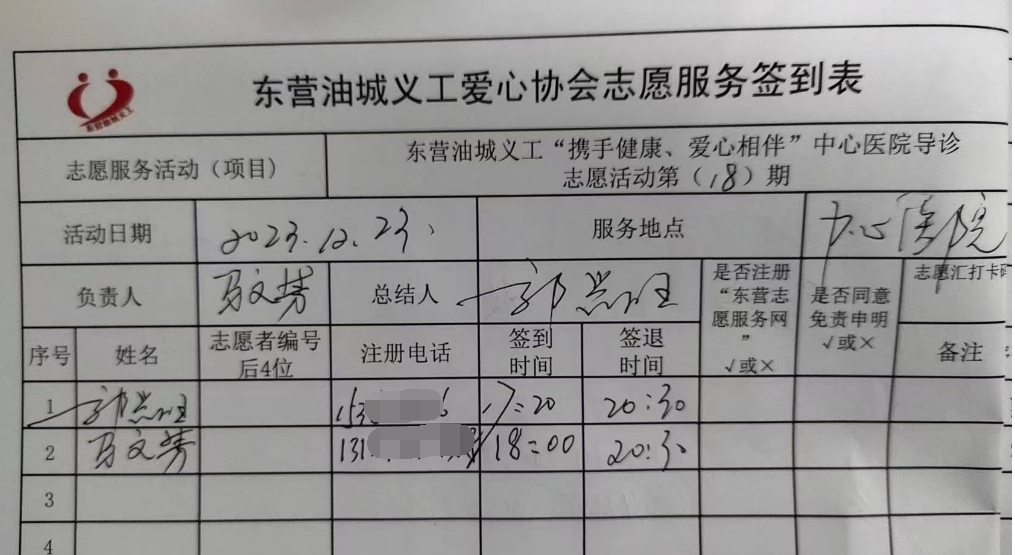 东营油城义工
东营油城义工爱心协会志愿服务签到表
志愿服务活动（项目）
东营油城义工“携手健康、爱心相伴”中心医院导诊
志愿活动第（18）期
活动日期
2023.12.23、
服务地点
中心医院
负责人
马文芳
总结人
是否注册
“东营志
愿服务网
”
√或×
是否同意
免责申明
√或×
志愿汇打卡
备注
序号
姓名
志愿者编号
后4位
注册电话
签到
时间
签退
时间
1
153
6
17:20
20:30
2
马文芳
131
18:00
20:30
3
4